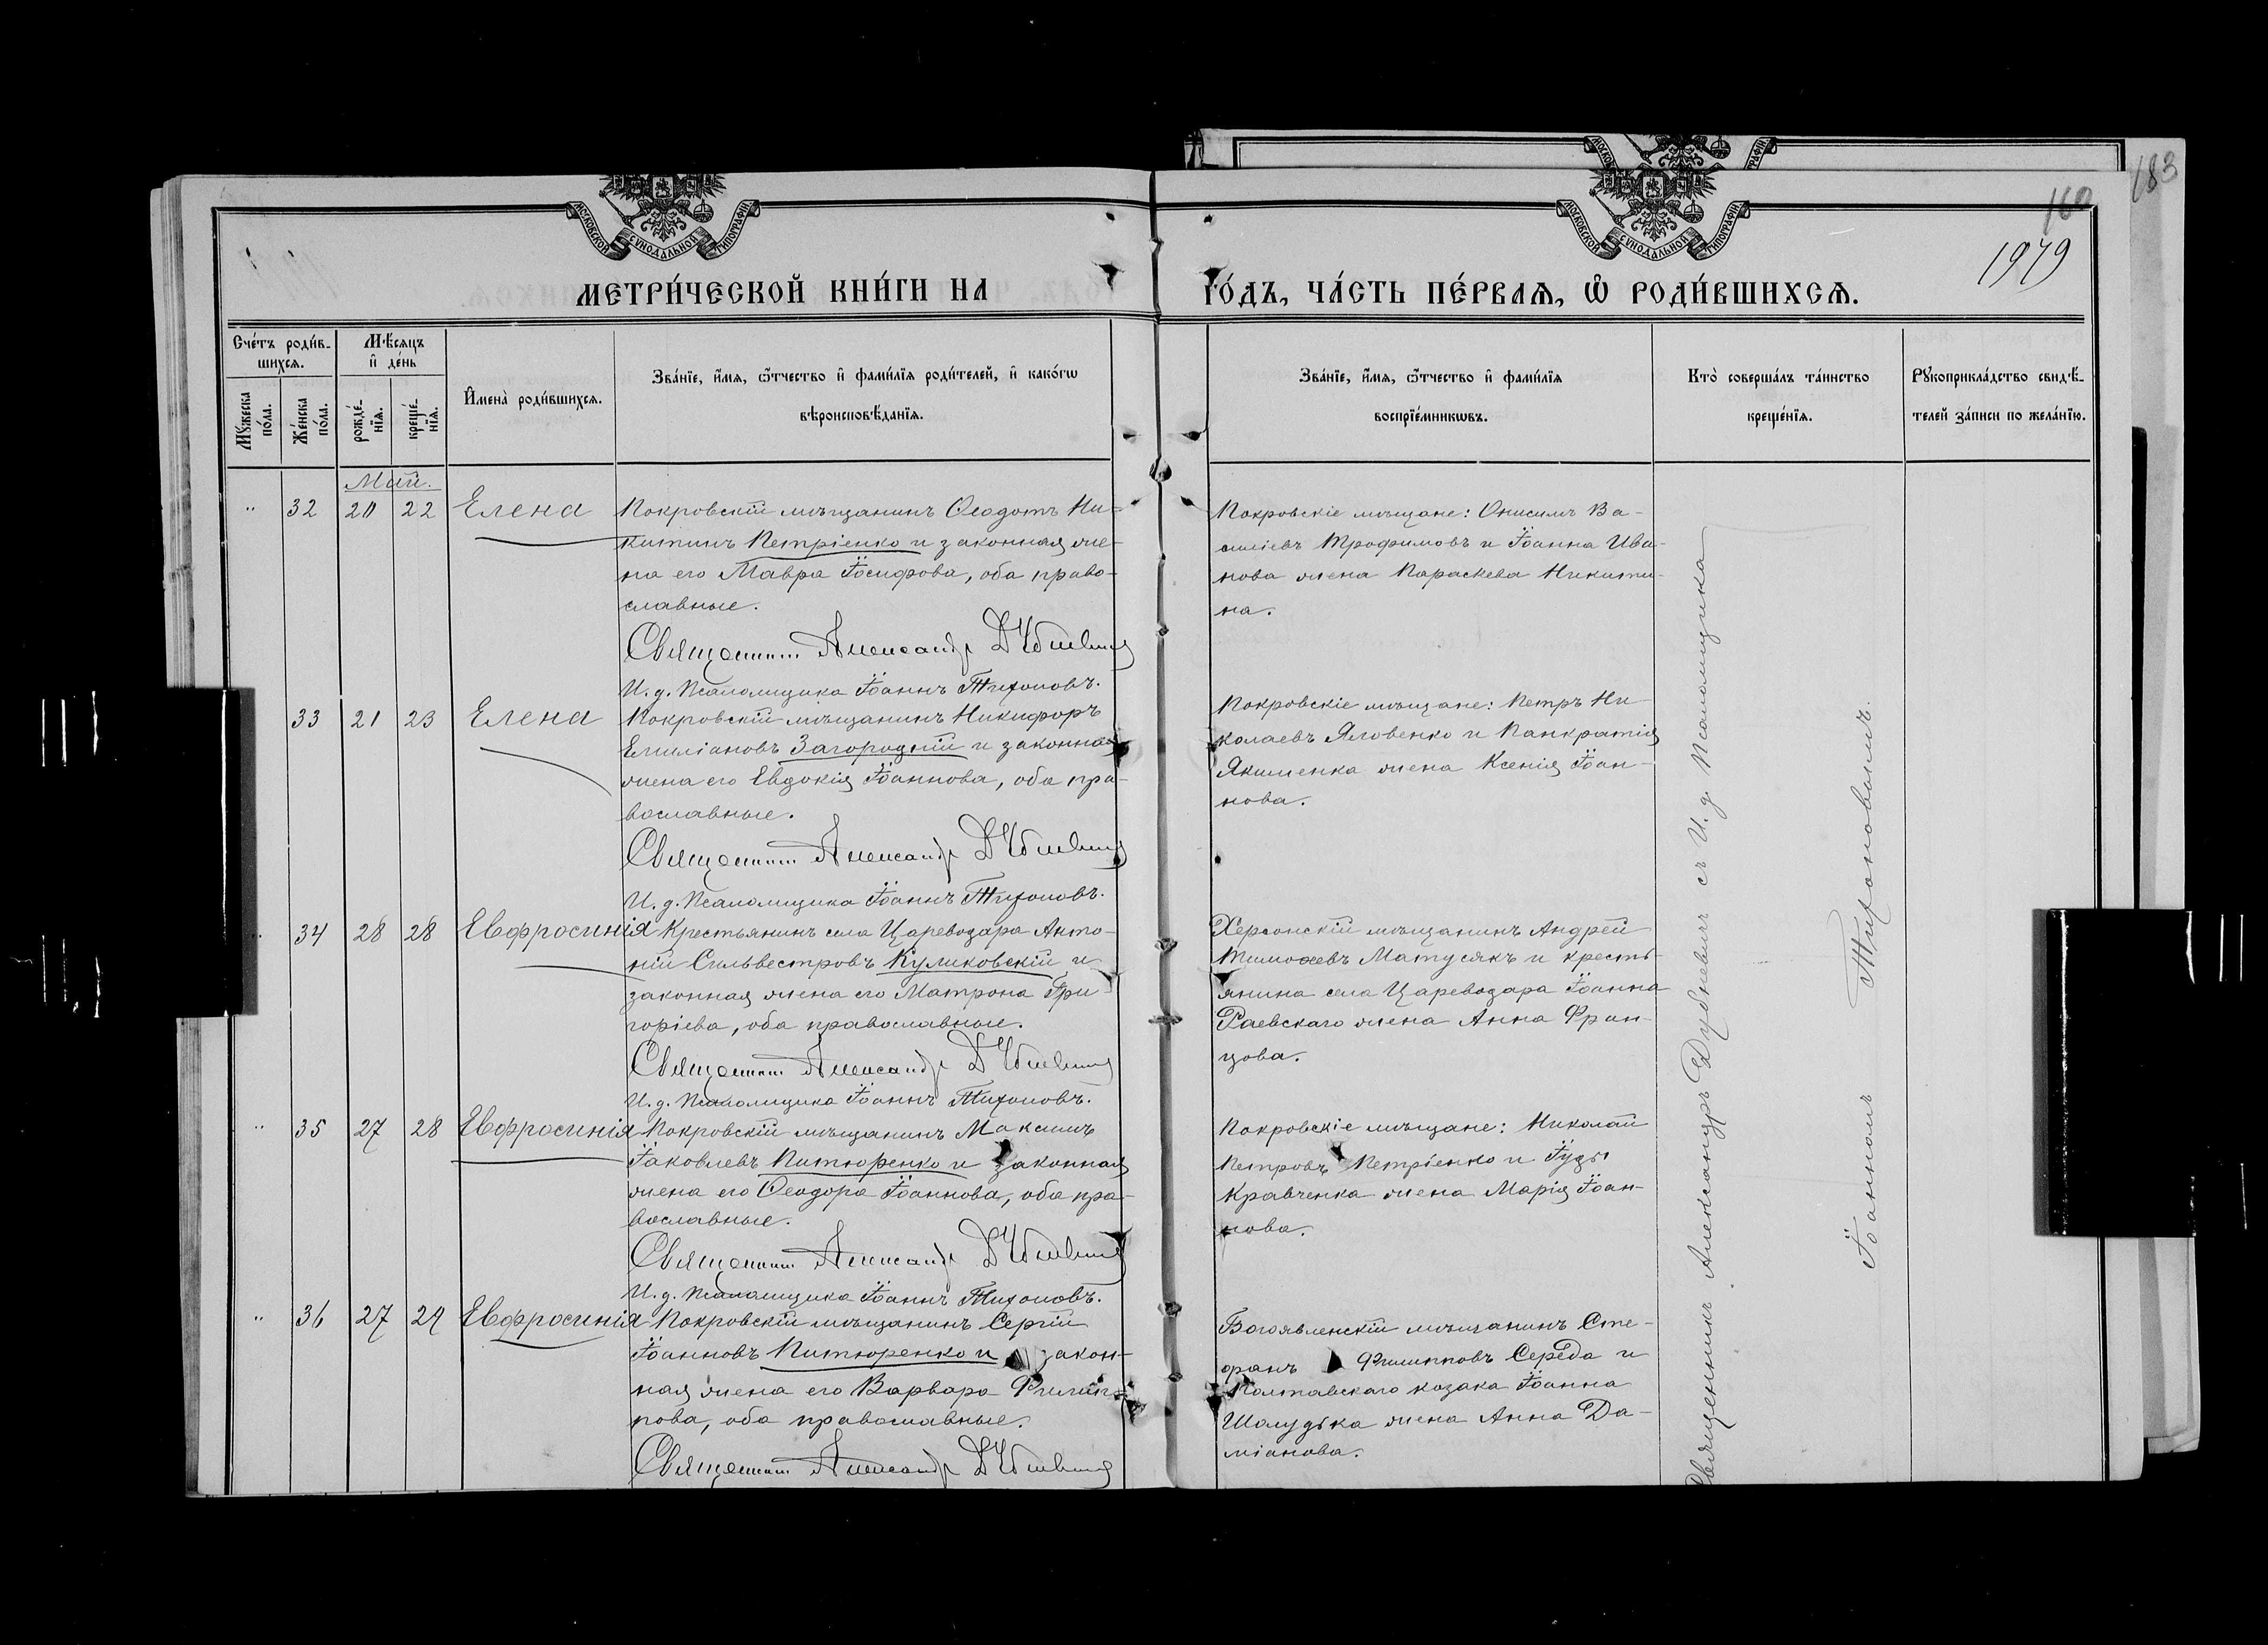 183
160
1979
МОСКОВСКОЙ СѴНОДАЛЬНОЙ ТИПОГРАФІИ
МОСКОВСКОЙ СѴНОДАЛЬНОЙ ТИПОГРАФІИ
МЕТРИ́ЧЕСКОЙ КНИ́ГИ НА
ГО́ДЪ, ЧА́СТЬ ПЕ́РВАѦ, Ѡ РОДИ́ВШИХСѦ.
Сче́тъ роди́в-
шихсѧ.
Мꙋ́жеска по́ла.
Же́нска по́ла.
Мѣ́сѧцъ
и҆ де́нь
рожде́-
нїѧ.
креще́-
нїѧ.
И҆мена̀ роди́вшихсѧ.
Зва́нїе, и҆́мѧ, ѻ҆́тчество и҆ фами́лїѧ роди́телей, и҆ како́гѡ
вѣроисповѣ́данїѧ.
Зва́нїе, и҆́мѧ, ѻ҆́тчество и҆ фами́лїѧ
воспрїе́мникѡвъ.
Кто̀ соверша́лъ та́инство
креще́нїѧ.
Рꙋкоприкла́дство свидѣ́-
телей за́писи по жела́нїю.
Май.
" 32 20 22 Елена
Покровскій мѣщанинъ Ѳеодотъ Ни-
китинъ Петріенко и законная же-
на его Мавра Іосифова, оба право-
славные.
Священник Александр Дубневич
И. д. Псаломщика Іоаннъ Тихоновъ.
Покровскіе мѣщане: Онисимъ Ва-
силіевъ Трофимовъ и Іоанна Ива-
нова жена Параскева Никити-
на.
33 21 23 Елена
Покровскій мѣщанинъ Никифоръ
Емиліановъ Загородній и законная
жена его Евдокія Іоаннова, оба пра-
вославные.
Священник Александр Дубневич
И. д. Псаломщика Іоаннъ Тихоновъ.
Покровскіе мѣщане: Петръ Ни-
колаевъ Яловенко и Панкратія
Якименка жена Ксенія Іоан-
нова.
" 34 28 28 Евфросинія
Крестьянинъ села Цареводара Анто-
ній Сильвестровъ Куликовскій и
законная жена его Матрона Гри-
горіева, оба православные.
Священник Александр Дубневич
И. д. Псаломщика Іоаннъ Тихоновъ.
Херсонскій мѣщанинъ Андрей
Тимоѳеевъ Матусякъ и кресть-
янина села Цареводара Іоанна
Раевскаго жена Анна Фран-
цова.
" 35 27 28 Евфросинія
Покровскій мѣщанинъ Максимъ
Іаковлевъ Питюренко и законная
жена его Ѳеодора Іоаннова, оба пра-
вославные.
Священник Александр Дубневич
И. д. Псаломщика Іоаннъ Тихоновъ.
Покровскіе мѣщане: Николай
Петровъ Петріенко и Гуды
Кравченка жена Марія Іоан-
нова.
" 36 27 29 Евфросинія
Покровскій мѣщанинъ Сергій
Іоанновъ Питюренко и закон-
ная жена его Варвара Филип-
пова, оба православные.
Священник Александр Дубневич
Богоявленскій мѣщанинъ Сте-
фанъ Филипповъ Середа и
Полтавскаго козака Іоанна
Шалудька жена Анна Да-
міанова.
Священникъ Александръ Дубневичъ съ И. д. Псаломщика
Іоанномъ Тихоновымъ.